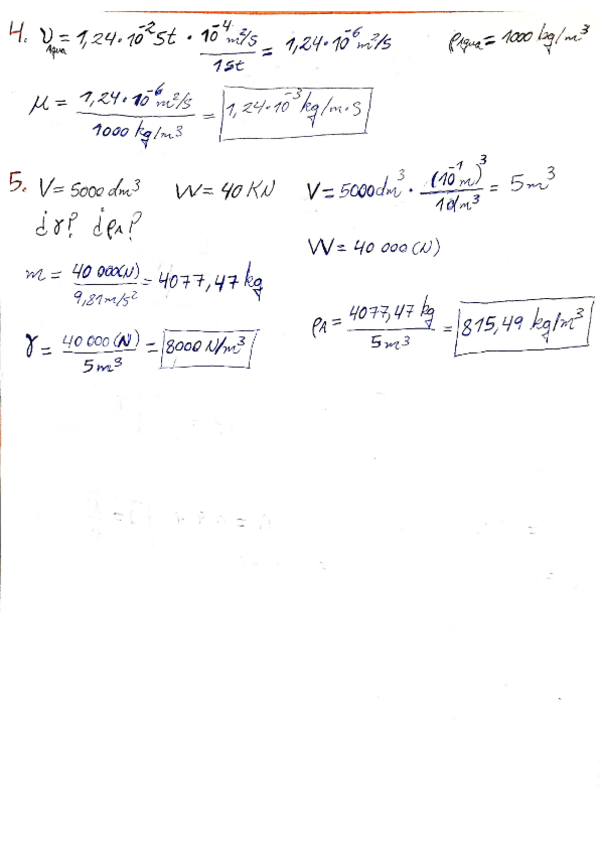 4. ν = 1,24·10⁻² St · 10⁻⁴ m²/s / 1 St = 1,24·10⁻⁶ m²/s ρ_Agua = 1000 kg/m³
Agua
μ = 1,24·10⁻⁶ m²/s / 1000 kg/m³ = 1,24·10⁻³ kg/m·s
5. V = 5000 dm³ W = 40 KN V = 5000 dm³ · (10⁻¹ m)³ / 1 dm³ = 5 m³
¿γ? ¿ρ_A?
W = 40 000 (N)
m = 40 000 (N) / 9,81 m/s² = 4077,47 kg
ρ_A = 4077,47 kg / 5 m³ = 815,49 kg/m³
γ = 40 000 (N) / 5 m³ = 8000 N/m³